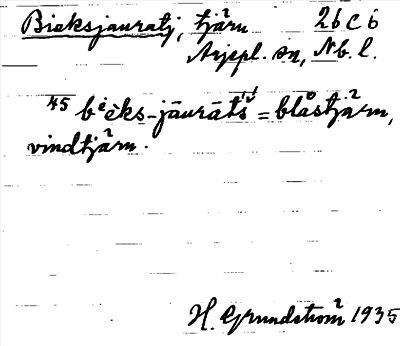 Bieksjauratj, tjärn 26 C 6
Arjepl. sn, Nb. l.
45 bi̯èks-jāurātš = blåstjärn,
vindtjärn.
H. Grundström 1935